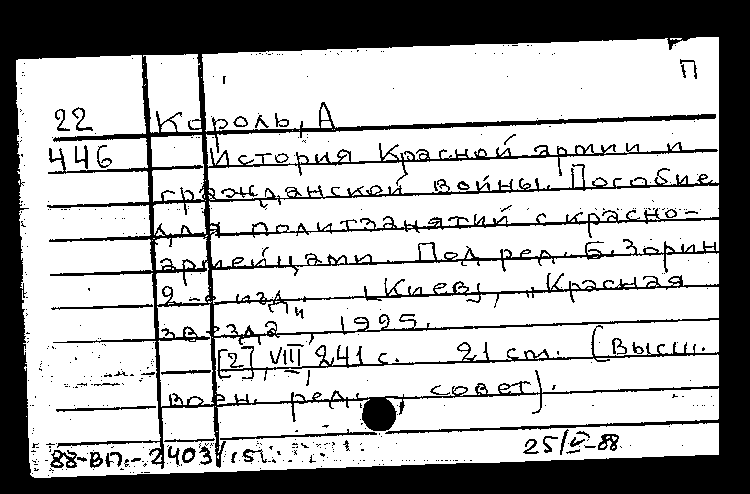 П
22 Король, А
446 История Красной армии и
гражданской войны. Пособие
для политзанятий с красно-
армейцами. Под ред. Б. Зорин
2-е изд. [Киев], „Красная
звезда", 1925.
[2], VIII, 241 с. 21 см. (Высш.
воен. ред. совет).
88-ВП.-2403/15
25/V-88